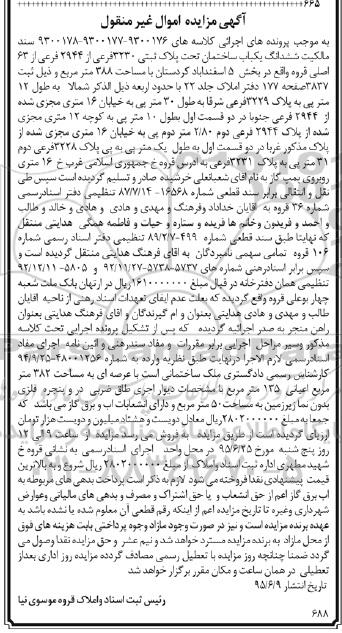 ۶۶۵
آگهی مزایده اموال غیر منقول
به موجب پرونده های اجرائی کلاسه های ۹۳۰۰۱۷۶-۹۳۰۰۱۷۷-۹۳۰۰۱۷۸ سند
مالکیت ششدانگ یکباب ساختمان تحت پلاک ثبتی ۳۲۳۰فرعی از ۲۹۴۴ فرعی از ۶۳
اصلی قروه واقع در بخش ۵ اسفندآباد کردستان با مساحت ۳۸۸ متر مربع و ذیل ثبت
۳۷صفحه ۱۷۷ دفتر املاک جلد ۲۲ با حدود اربعه ذیل الذکر شمالا به طول ۱۲
متر پی به پلاک ۳۲۲۹فرعی شرقا به طول ۳۰ متر پی به خیابان ۱۶ متری مجزی شده
از ۲۹۴۴ فرعی جنوبا در دو قسمت اول بطول ۱۰ متر پی به کوچه ۱۲ متری مجزی
شده از پلاک ۲۹۴۴ فرعی دوم ۲/۸۰ متر دوم پی به خیابان ۱۶ متری مجزی شده از
پلاک مذکور غربا در دو قسمت اول به طول یک متر پی به پی پلاک ۳۲۲۸فرعی دوم
۳۱ متر پی به پلاک ۳۲۳۱فرعی به آدرس قروه خ جمهوری اسلامی غرب خ ۱۶ متری
روبروی پمپ گاز به نام آقای شعبانعلی خرشیده صادر و تسلیم گردیده است سپس طی
نقل و انتقالی برابر سند قطعی شماره ۱۶۵۶۸-۸۷/۷/۱۴ تنظیمی دفتر اسنادرسمی
شماره ۳۶ قروه به آقایان خداداد وفرهنگ و مهدی و هادی و هادی و خالد و طالب
و احمد و فریدون وخانم ها فریده و ستاره و حیات و فاطمه همگی هدایتی منتقل
که نهایتا طبق سند قطعی شماره ۴۹۹-۸۹/۲/۷ تنظیمی دفتر اسناد رسمی شماره
۱۰۶ قروه تمامی سهمی نامبردگان به آقای فرهنگ هدایتی منتقل گردیده است و
سپس برابر اسنادرهنی شماره های ۵۷۳۷-۵۷۳۸-۹۲/۱۱/۲۷ و ۵۸۰۵-۹۲/۱۲/۱۱
تنظیمی همان دفترخانه در قبال مبلغ ۱۶۱۰۰۰۰۰۰۰ریال در ارتهان بانک ملت شعبه
چهار راه بوعلی قروه واقع گردیده که بعلت عدم ایفای تعهدات اسناد رهنی از ناحیه آقایان
طالب و مهدی و هادی هدایتی بعنوان و ام گیرندگان و آقای فرهنگ هدایتی بعنوان
راهن منجر به صدر اجرائیه گردیده که پس از تشکیل پرونده اجرایی تحت کلاسه
مذکور وسیر مراحل اجرایی برابر مقررات و مفاد سندرهنی و آئین نامه اجرای مفاد
اسنادرسمی لازم الاجرا درنهایت طبق نظریه وارده به شماره ۴۸۰۰۱۲۵۶-۹۴/۹/۲۵
کارشناس رسمی دادگستری ملک ساختمانی است با عرصه ای به مساحت ۳۸۲ متر
مربع اعیانی ۱۳۵ متر مربع با مشخصات دیوار آجری طاق ضربی در و پنجره فلزی
بدون نما زیرزمین به مساحت ۵۰ متر مربع و دارای انشعابات آب و برق گاز می باشد که
جمعا به مبلغ ۲۸۰۲۰۰۰۰۰۰ریال معادل دویست و هشتاد میلیون و دویست هزار تومان
ارزیابی گردیده است از طریق مزایده به فروش می رسد مزایده از ساعت ۹ الی ۱۲
روز پنج شنبه مورخ ۹۵/۶/۲۵ در محل واحد اجرای اسنادرسمی به نشانی قروه خ
شهید مطهری اداره ثبت اسناد واملاک از مبلغ ۲۸۰۲۰۰۰۰۰۰ ریال شروع و به بالاترین
قیمت پیشنهادی نقدا فروخته می شود لازم به ذکر است پرداخت بدهی های مربوطه به
آب برق گاز اعم از حق انشعاب و یا حق اشتراک و مصرف و بدهی های مالیاتی وعوارض
شهرداری وغیره تا تاریخ مزایده اعم از اینکه رقم قطعی آن معلوم شده یا نشده باشد به
عهده برنده مزایده است و نیز در صورت وجود مازاد وجوه پرداختی بابت هزینه های فوق
از محل مازاد به برنده مزایده مسترد خواهد شد و نیم عشر و حق مزایده نقدا وصول می
گردد ضمنا چنانچه روز مزایده با تعطیل رسمی مصادف گردده مزایده روز اداری بعداز
تعطیلی در همان ساعت و مکان مقرر برگزار خواهد شد
تاریخ انتشار ۹۵/۶/۹
رئیس ثبت اسناد واملاک قروه موسوی نیا
۶۸۸